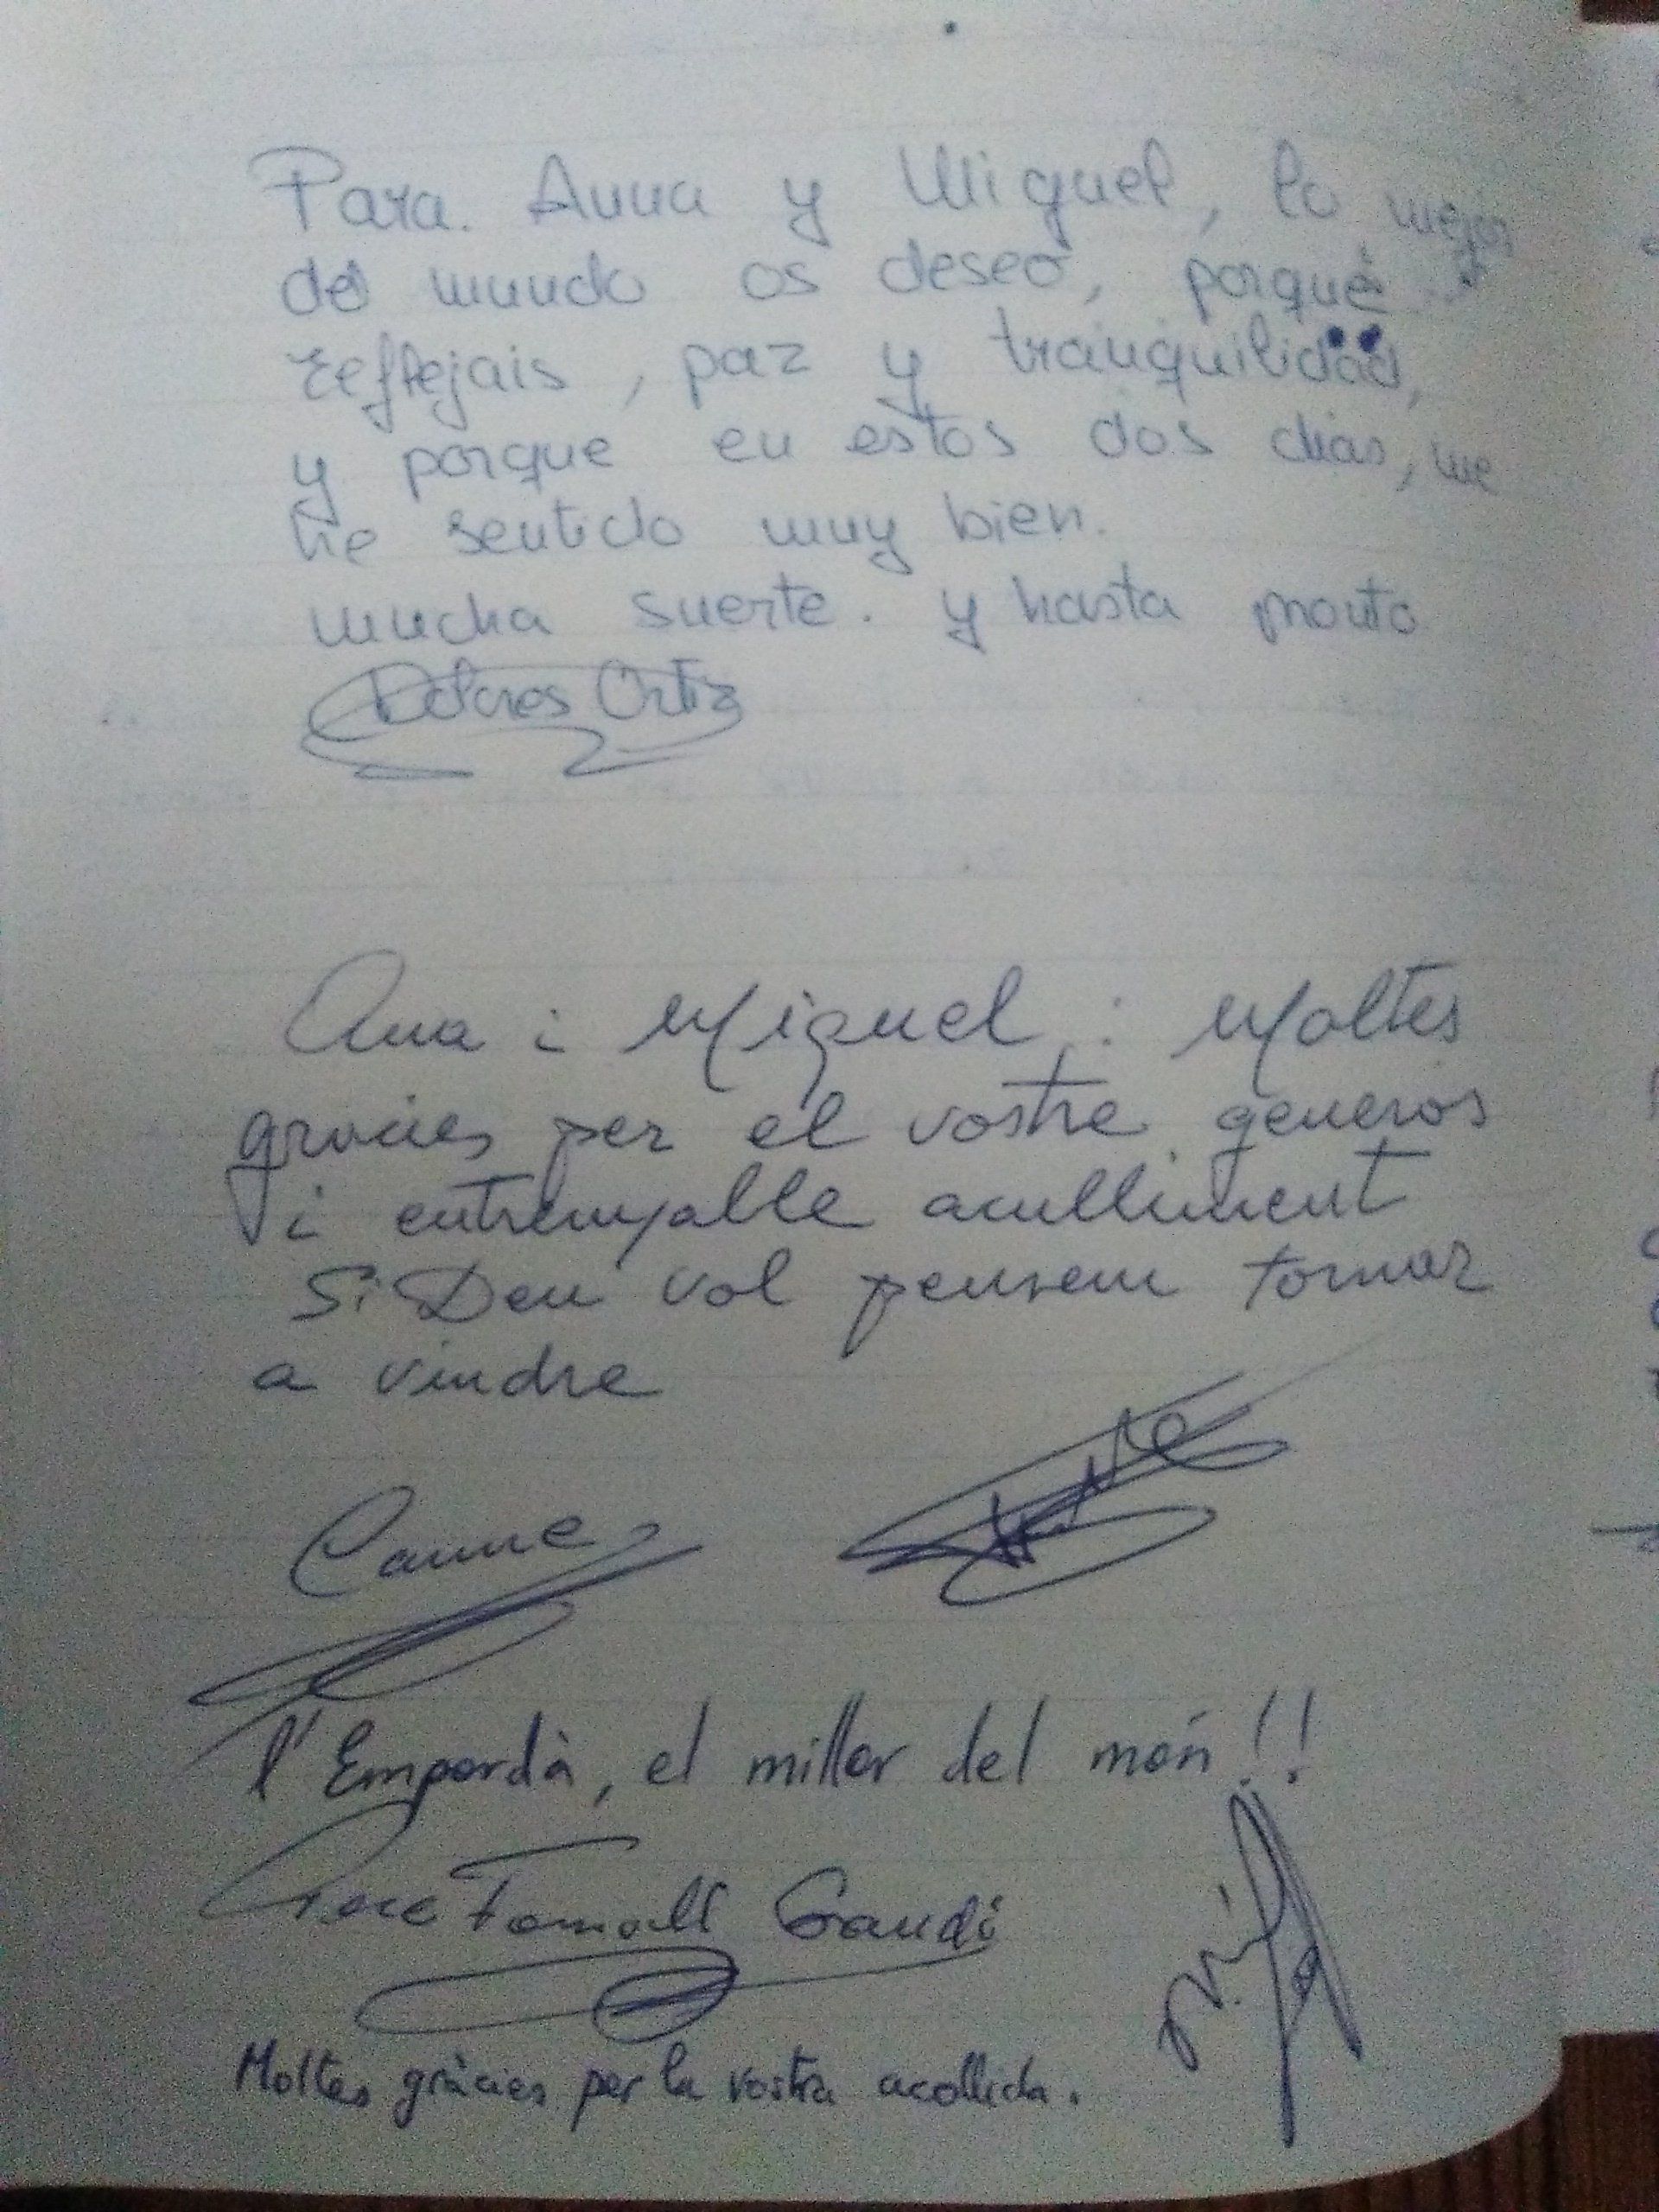 Para. Anna y Miguel, lo mejor
del mundo os deseo, porqué
reflejais, paz y tranquilidad,
y porque en estos dos dias, me
he sentido muy bien.
mucha suerte. y hasta pronto
Dolores Ortiz
Ana i Miquel : Moltes
gracies per el vostre generos
i entrenyable aculliment
Si Deu vol pensem tornar
a vindre
Carme
l'Empordà, el millor del món!!
Pere Gaudi
Moltes gràcies per la vostra acollida.